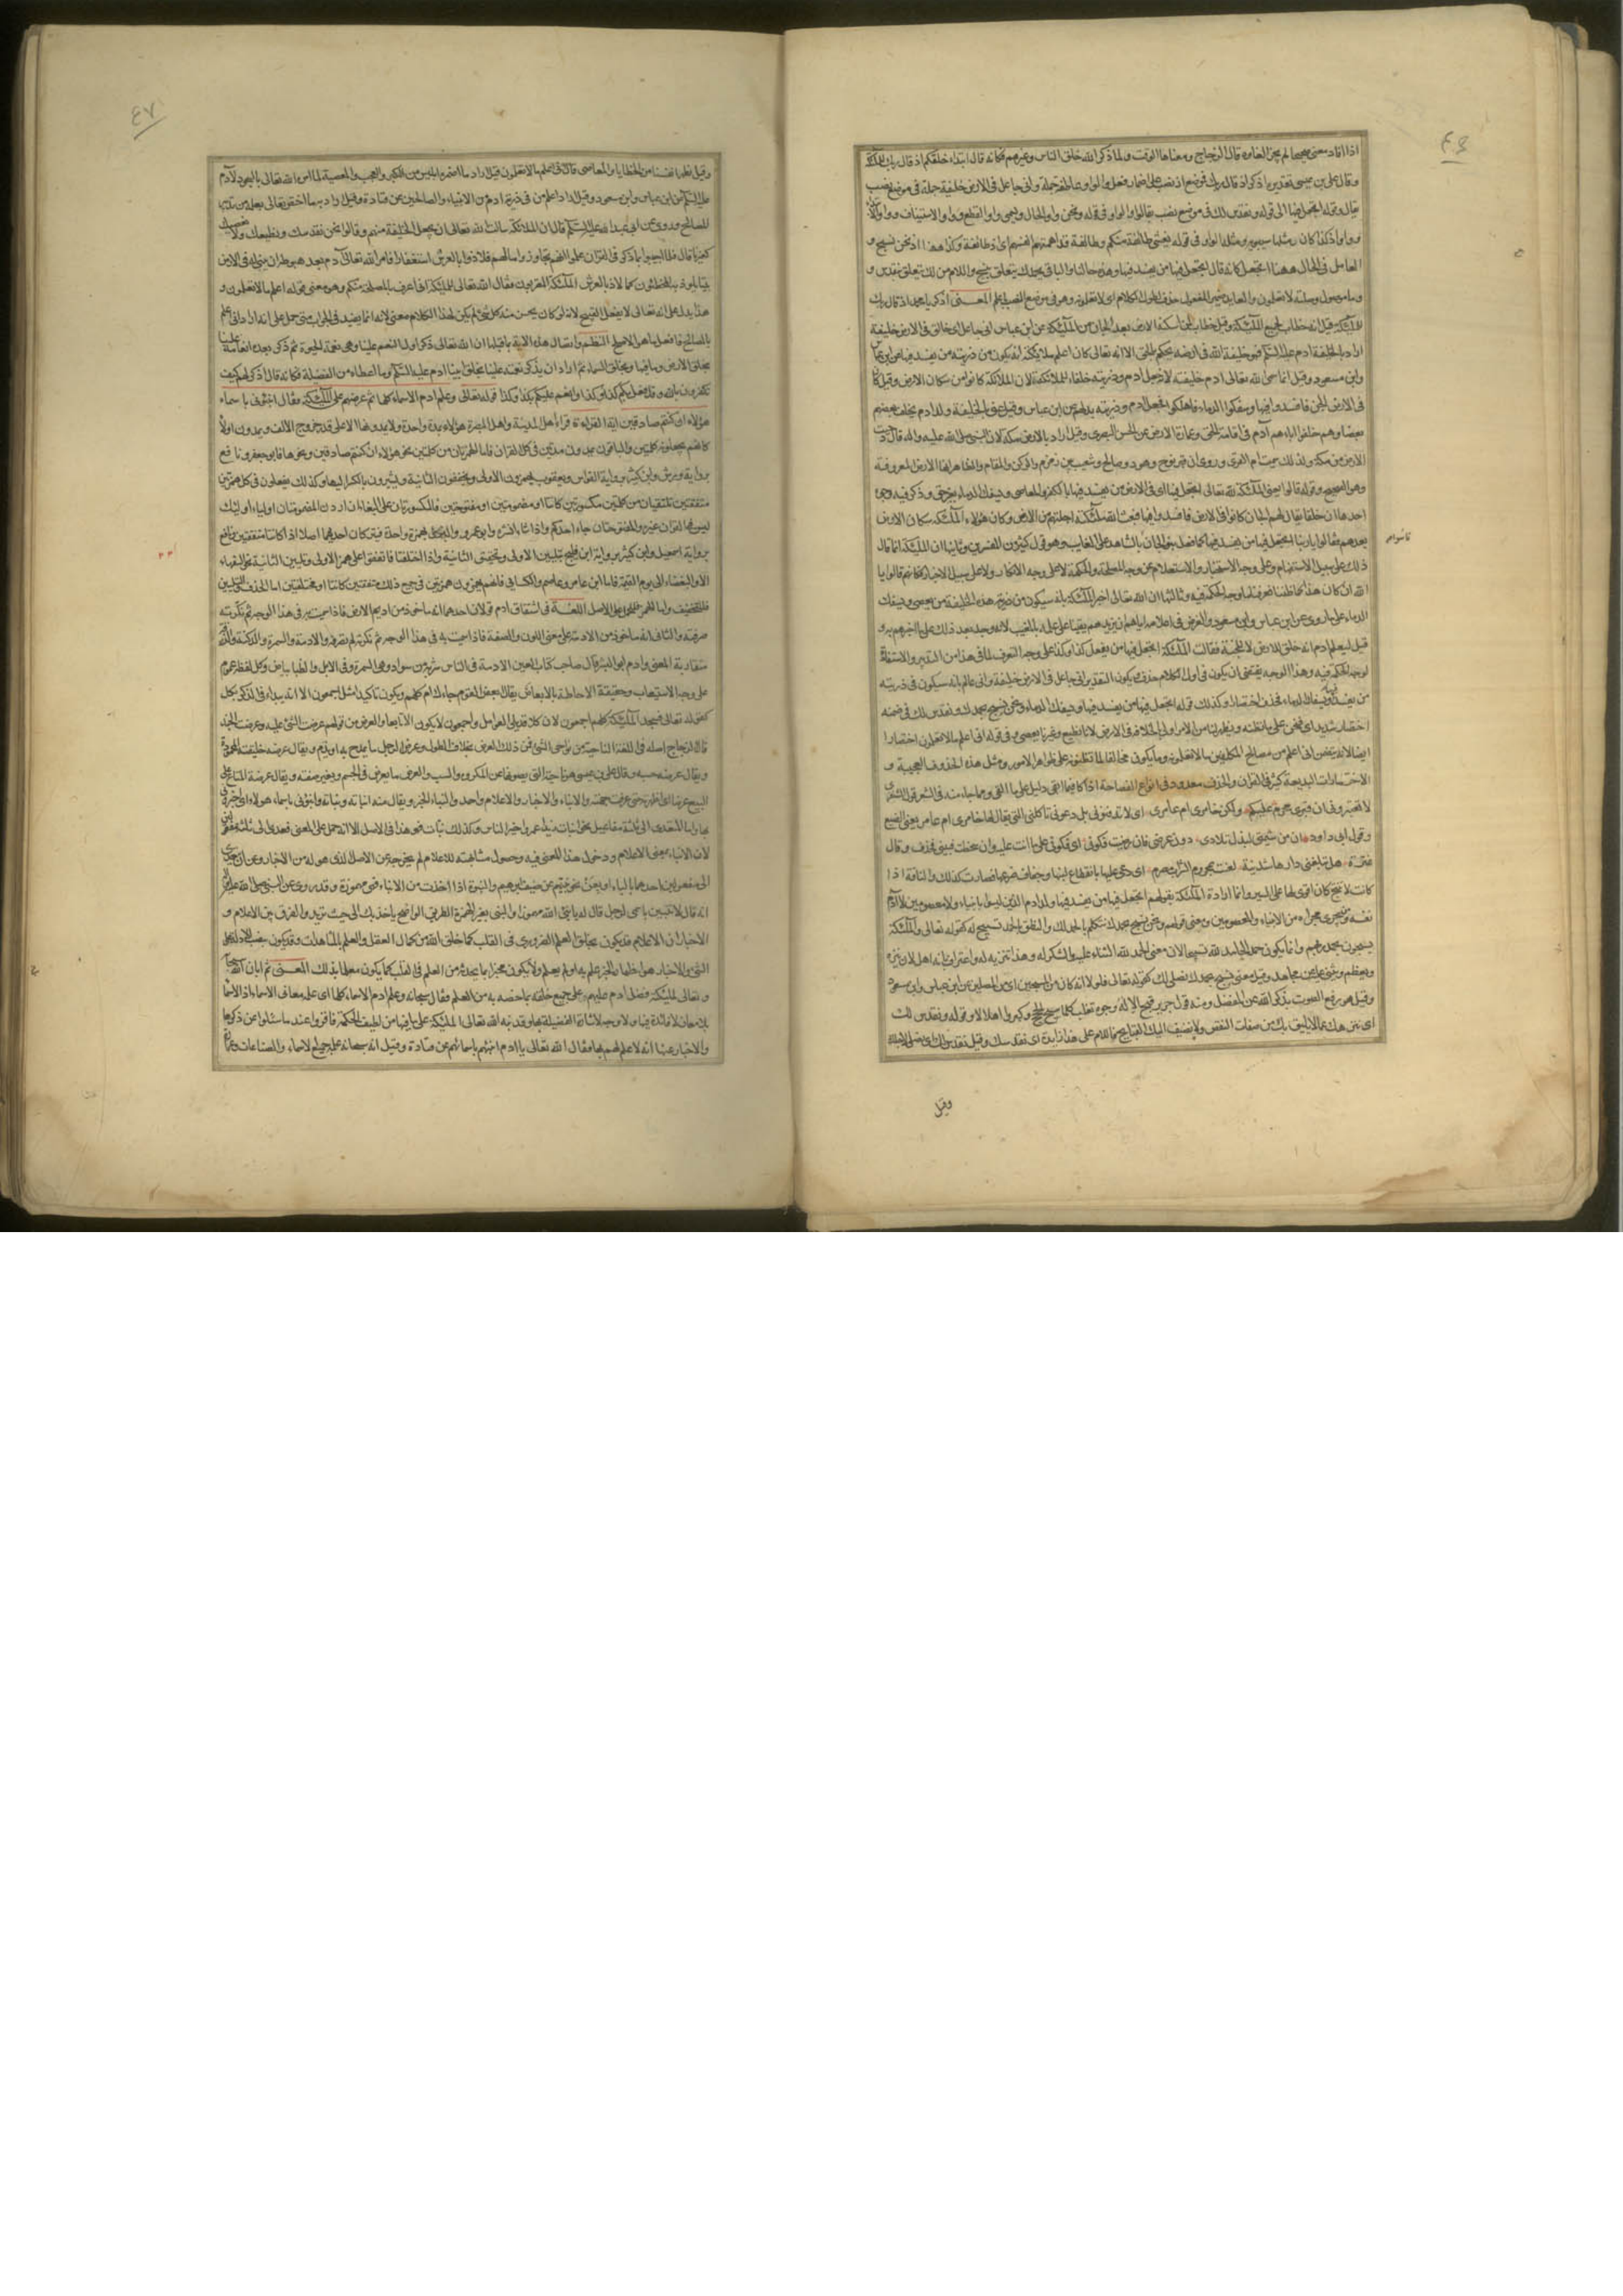 ٤٦
اذا افاد معنى صحيحا لم يجز الغاءه قال الزجاج ومعناها الوقت ولما ذكر الله خلق الناس وغيرهم فكانه قال ابتداء خلقكم اذ قال ربك للملئكة
وقال على بن عيسى تقديره اذكر اذ قال ربك فموضع اذ نصب على اضمار فعل والواو عاطفة جملة وانى جاعل فى الارض خليفة جملة فى موضع نصب
بقال وقوله اتجعل فيها الى قوله ونقدس لك فى موضع نصب بقالوا والواو فى قوله ونحن واو الحال ويسمى واو القطع وواو الاستيناف وواو الابتداء
وواو اذ كذا كان يمثلها سيبويه ومثله الواو فى قوله يغشى طائفة منكم وطائفة قد اهمتهم انفسهم اى اذ طائفة وكذا ههنا اذ نحن نسبح و
العامل فى الحال ههنا اتجعل كانه قال اتجعل فيها من يفسد فيها وهذه حالنا والباء فى بحمدك يتعلق بنسبح واللام من لك يتعلق بنقدس و
وما موصول وصلته لا تعلمون والعايد ضمير المفعول حذف لطول الكلام اى لا تعلمونه وهو فى موضع النصب باعلم المعنى اذكر يا محمد اذ قال ربك
للملئكة قيل انه خطاب لجميع الملئكة وقيل خطاب لمن اسكنه الارض بعد الجان من الملئكة عن ابن عباس انى جاعل اى خالق فى الارض خليفة
اراد بالخليفة ادم عليه السلم فهو خليفة الله فى ارضه يحكم بالحق الا انه تعالى كان اعلم ملايكته انه يكون من ذريته من يفسد فيها عن ابن عباس
وابن مسعود وقيل انما سمى الله تعالى ادم خليفة لانه جعل ادم وذريته خلفاء للملائكة لان الملائكة كانوا من سكان الارض وقيل كان
فى الارض الجن فافسدوا فيها وسفكوا الدماء فاهلكوا فجعل ادم وذريته بدلهم عن ابن عباس وقيل عنى بالخليفة ولد ادم يخلف بعضهم
بعضا وهم خلفوا اباهم آدم فى اقامة الحق وعمارة الارض عن الحسن البصرى وقيل اراد بالارض مكة لان النبى صلى الله عليه واله قال دحيت
الارض من مكة ولذلك سميت ام القرى وروى ان قبر نوح وهود وصالح وشعيب بين زمزم والركن والمقام والظاهر انها الارض المعروفة
وهو الصحيح وقوله قالوا يعنى الملئكة لله تعالى اتجعل فيها اى فى الارض من يفسد فيها بالكفر والمعاصى ويسفك الدماء بغير حق وذكر فيه وجوه
احدها ان خلقا يقال لهم الجان كانوا فى الارض فافسدوا فيها فبعث الله ملئكة اجلتهم من الارض وكان هؤلاء الملئكة سكان الارض
بعدهم فقالوا يا ربنا اتجعل فيها من يفسد فيها كما فعل بنو الجان بالشاهد على الغايب وهو قول كثير من المفسرين وثانيها ان الملئكة انما قال
قاسوا
ذلك على سبيل الاستفهام وعلى وجه الاستخبار والاستعلام عن وجه المصلحة والحكمة لا على وجه الانكار ولا على سبيل الاخبار فكانهم قالوا يا
الله ان كان هذا كما ظننا فعرفنا ما وجه الحكمة فيه وثالثها ان الله تعالى اخبر الملئكة بانه سيكون من ذرية هذه الخليفة من يعصى ويسفك
الدماء على ما روى عن ابن عباس وابن مسعود والغرض فى اعلامه اياهم ان يزيدهم يقينا على علمه بالغيب لانه وجد بعد ذلك على ما اخبرهم به و
قيل ليعلم ادم انه خلق للارض لا للجنة فقالت الملئكة اتجعل فيها من يفعل كذا وكذا على وجه التعرف لما فى هذا من التدبير والاستفادة
لوجه الحكمة فيه وهذا الوجه يقتضى ان يكون فى اول الكلام حذف ويكون التقدير انى جاعل فى الارض خليفة وانى عالم بانه سيكون فى ذريته
من يفسد فيها ويسفك الدماء فحذف اختصارا وكذلك قوله اتجعل فيها من يفسد فيها ويسفك الدماء ونحن نسبح بحمدك ونقدس لك فى ضمنه
اختصار شديد اى فنحن على ما نظنه ويظهر لنا من الامر اولى بالخلافة فى الارض لانا نطيع وغيرنا يعصى وفى قوله انى اعلم ما لا تعلمون اختصارا
ايضا لانه يتضمن انى اعلم من مصالح المكلفين ما لا تعلمونه وما يكون مخالفا لما تظنونه على ظواهر الامور ومثل هذه الحذوف العجيبة و
الاختصارات البديعة كثير فى القران والحذف معدود فى انواع الفصاحة اذا كان فيما ابقى دليل على ما القى ومما جاء منه فى الشعر قول الشنفرى
لا تقبرونى ان قبرى محرم عليكم ولكن خامرى ام عامرى اى لا تدفنونى بل دعونى تاكلنى التى يقال لها خامرى ام عامر يعنى الضبع
وقول ابى داود ان من شيمتى لبذل تلادى دون عرضى فان رضيت فكونى اى فكونى على ما انت عليه وان سخطت فبينى فحذف وقال
عنترة هل تبلغنى دارها شدنية لعنت بمحروم الشراب مصرم اى دعى عليها بانقطاع لبنها وجفاف ضرعها فصارت كذلك والناقة اذا
كانت لا تنتج كان اقوى لها على السير وانما اراد الملئكة بقولهم اتجعل فيها من يفسد فيها ولد ادم الذين ليسوا بانبياء ولا معصومين لا آدم
نفسه ومن يجرى مجراه من الانبياء والمعصومين ومعنى قولهم ونحن نسبح بحمدك نتكلم بالحمد لك والنطق بالحمد تسبيح له كقوله تعالى والملئكة
يسبحون بحمد ربهم وانما يكون حمد الحامد لله تسبيحا لان معنى الحمد لله الثناء عليه والشكر له وهذا تنزيه له واعتراف بانه اهل لان ينزه
ويعظم ويثنى عليه عن مجاهد وقيل معنى نسبح بحمدك نصلى لك كقوله تعالى فلولا انه كان من المسبحين اى من المصلين عن ابن عباس وابن مسعود
وقيل هو رفع الصوت بذكر الله عن المفضل ومنه قول جرير قبح الاله وجوه تغلب كلما سبح الحجيج وكبروا اهلالا وقوله ونقدس لك
اى ننزهك عما لا يليق بك من صفات النقص ولا نضيف اليك القبايح فاللام على هذا زايدة اى نقدسك وقيل نقدس لك اى نصلى لاجلك
وقيل
٤٧
وقيل نطهر انفسنا من الخطايا والمعاصى قال انى اعلم ما لا تعلمون قيل اراد ما اضمره ابليس من الكبر والعجب والمعصية لما امره الله تعالى بالسجود لآدم
عليه السلم عن ابن عباس وابن مسعود وقيل اراد اعلم من فى ذرية ادم من الانبياء والصالحين عن قتادة وقيل اراد به ما اختص تعالى بعلمه من تدبير
المصالح وروى عن ابى عبد الله عليه السلم قال ان الملائكة سالت الله تعالى ان يجعل الخليفة منهم وقالوا نحن نقدسك ونطيعك ولا نعصيك
كغيرنا قال فلما اجيبوا بما ذكر فى القران علموا انهم تجاوزوا ما لهم فلاذوا بالعرش استغفارا فامر الله تعالى آدم بعد هبوطه ان يبنى له فى الارض
بيتا يلوذ به المخطئون كما لاذ بالعرش الملئكة المقربون فقال الله تعالى للملئكة انى اعرف بالمصلحة منكم وهو معنى قوله اعلم ما لا تعلمون و
هذا يدل على انه تعالى لا يفعل القبيح لانه لو كان يحسن منه كل شئ لم يكن لهذا الكلام معنى لانه انما يفيد فى الجواب متى حمل على انه اراد انى اعلم
بالمصالح فافعل ما هو الاصلح النظم واتصال هذه الاية بما قبلها ان الله تعالى ذكر اول النعم علينا وهى نعمة الحيوة ثم ذكر بعده انعامه علينا
بخلق الارض وما فيها وبخلق السماء ثم اراد ان يذكر نعمته علينا بخلق ابينا ادم عليه السلم وما اعطاه من الفضيلة فكانه قال اذكر لهم كيف
تكفرون بالله وقد فعل بكم كذا وكذا وانعم عليكم بكذا وكذا قوله تعالى وعلم ادم الاسماء كلها ثم عرضهم على الملئكة فقال انبئونى باسماء
هؤلاء ان كنتم صادقين اية القراءة قراء اهل المدينة واهل البصرة هؤلاء بمدة واحدة ولا يمدونها الا على قدر خروج الالف ويمدون اولاء
كانهم يجعلونه كلمتين والباقون يمدون مدتين فى كل القران فاما الهمزتان من كلمتين نحو هؤلاء ان كنتم صادقين ونحوها فابو جعفر ونافع
برواية ورش وابن كثير برواية القواس ويعقوب يهمزون الاولى ويخففون الثانية ويشيرون بالكسر اليها وكذلك يفعلون فى كل همزتين
متفقتين تلتقيان من كلمتين مكسورتين كانتا او مضمومتين او مفتوحتين فالمكسورتان على البغاء ان اردن المضمومتان اولياء اولئك
ليس فى القران غيره والمفتوحتان جاء احدكم واذا شاء انشره وابو عمرو والبزى بهمزة واحدة فيتركان احديهما اصلا اذا كانتا متفقتين ونافع
برواية اسمعيل وابن كثير برواية ابن فليح بتليين الاولى وتحقيق الثانية واذا اختلفتا فاتفقوا على همز الاولى وتليين الثانية نحو السفهاء
الا والبغضاء الى يوم القيمة فاما ابن عامر وعاصم والكسائى فانهم يهمزون همزتين فى جميع ذلك متفقتين كانتا او مختلفتين اما الحذف والتليين
فللتخفيف واما الهمز فعلى الاصل اللغة فى اشتقاق ادم قولان احدهما انه ماخوذ من اديم الارض فاذا سميت به فى هذا الوجه ثم نكرته
صرفته والثانى انه ماخوذ من الادمة على معنى اللون والصفة فاذا سميت به فى هذا الوجه ثم نكرته لم تصرفه والادمة والسمرة والدكنة والورقة
متقاربة المعنى وادم ابو البشر قال صاحب كتاب العين الادمة فى الناس شربة من سواد وهى السمرة وفى الابل والظباء بياض وكل لفظة عموم
على وجه الاستيعاب وحقيقة الاحاطة بالابعاض يقال ابعض القوم جاءك ام كلهم ويكون تاكيدا مثل اجمعون الا انه يبدا فى الذكر بكل
كقوله تعالى فسجد الملئكة كلهم اجمعون لان كلا قد يلى العوامل واجمعون لا يكون الا تابعا والعرض من قولهم عرضت الشئ عليه وعرضت الجند
قال الزجاج اصله فى اللغة الناحية من نواحى الشئ فمن ذلك العرض خلاف الطول وعرض الرجل ما يمدح به او يذم ويقال عرضه خليقته المحمودة
ويقال عرضه حسبه وقال على بن عيسى هو ناحيته التى يصونها عن المكروه والسب والعرض ما يعرض فى الجسم ويغير صفته ويقال عرضت المتاع على
البيع عرضا اى اظهرته حتى عرفت جهته والانباء والاخبار والاعلام واحد والنباء الخبر ويقال منه انباته ونباته وانبئونى باسماء هؤلاء اى اخبرونى
بها اما المتعدى الى ثلثة مفاعيل نحو انبات زيدا عمرا خير الناس وكذلك نبات فهو هذا فى الاصل الا انه حمل على المعنى فعدى الى ثلثة مفعولين
لان الانباء بمعنى الاعلام ودخول هذا المعنى فيه وحصول مشابهته للاعلام لم يخرجه عن الاصل الذى هو له من الاخبار وعن ان يتعدى
الى مفعولين احدهما بالباء او بعن نحو نبئهم عن ضيف ابرهيم والنبوة اذا اخذت من الانباء فهى مهموزة وقد روى عن النبى صلى الله عليه واله
انه قال لا تنبزن باسمى لرجل قال له يا نبئ الله مهموزا والنبى بغير الهمزة الطريق الواضح ياخذ بك الى حيث تريد والفرق بين الاعلام و
الاخبار ان الاعلام قد يكون بخلق العلم الضرورى فى القلب كما خلق الله من كمال العقل والعلم بالمشاهدات وقد يكون بنصب الادلة على
الشئ والاخبار هو اظهار الخبر علم به او لم يعلم ولا يكون مخبرا بما يحدثه من العلم فى القلب كما يكون معلما بذلك المعنى ثم ابان سبحانه
وتعالى لملئكته فضل ادم عليهم وعلى جميع خلقه بما خصه به من العلم فقال سبحانه وعلم ادم الاسماء كلها اى علمه معانى الاسماء اذ الاسماء
بلا معان لا فائدة فيها ولا وجه لاشارة الفضيلة بها وقد نبه الله تعالى الملئكة على ما فيها من لطيف الحكمة فاقروا عند ما سئلوا عن ذكرها
والاخبار عنها انه لا علم لهم بها فقال الله تعالى يا ادم انبئهم باسمائهم عن قتادة وقيل انه سبحانه علمه جميع الاسماء والصناعات وعمارة